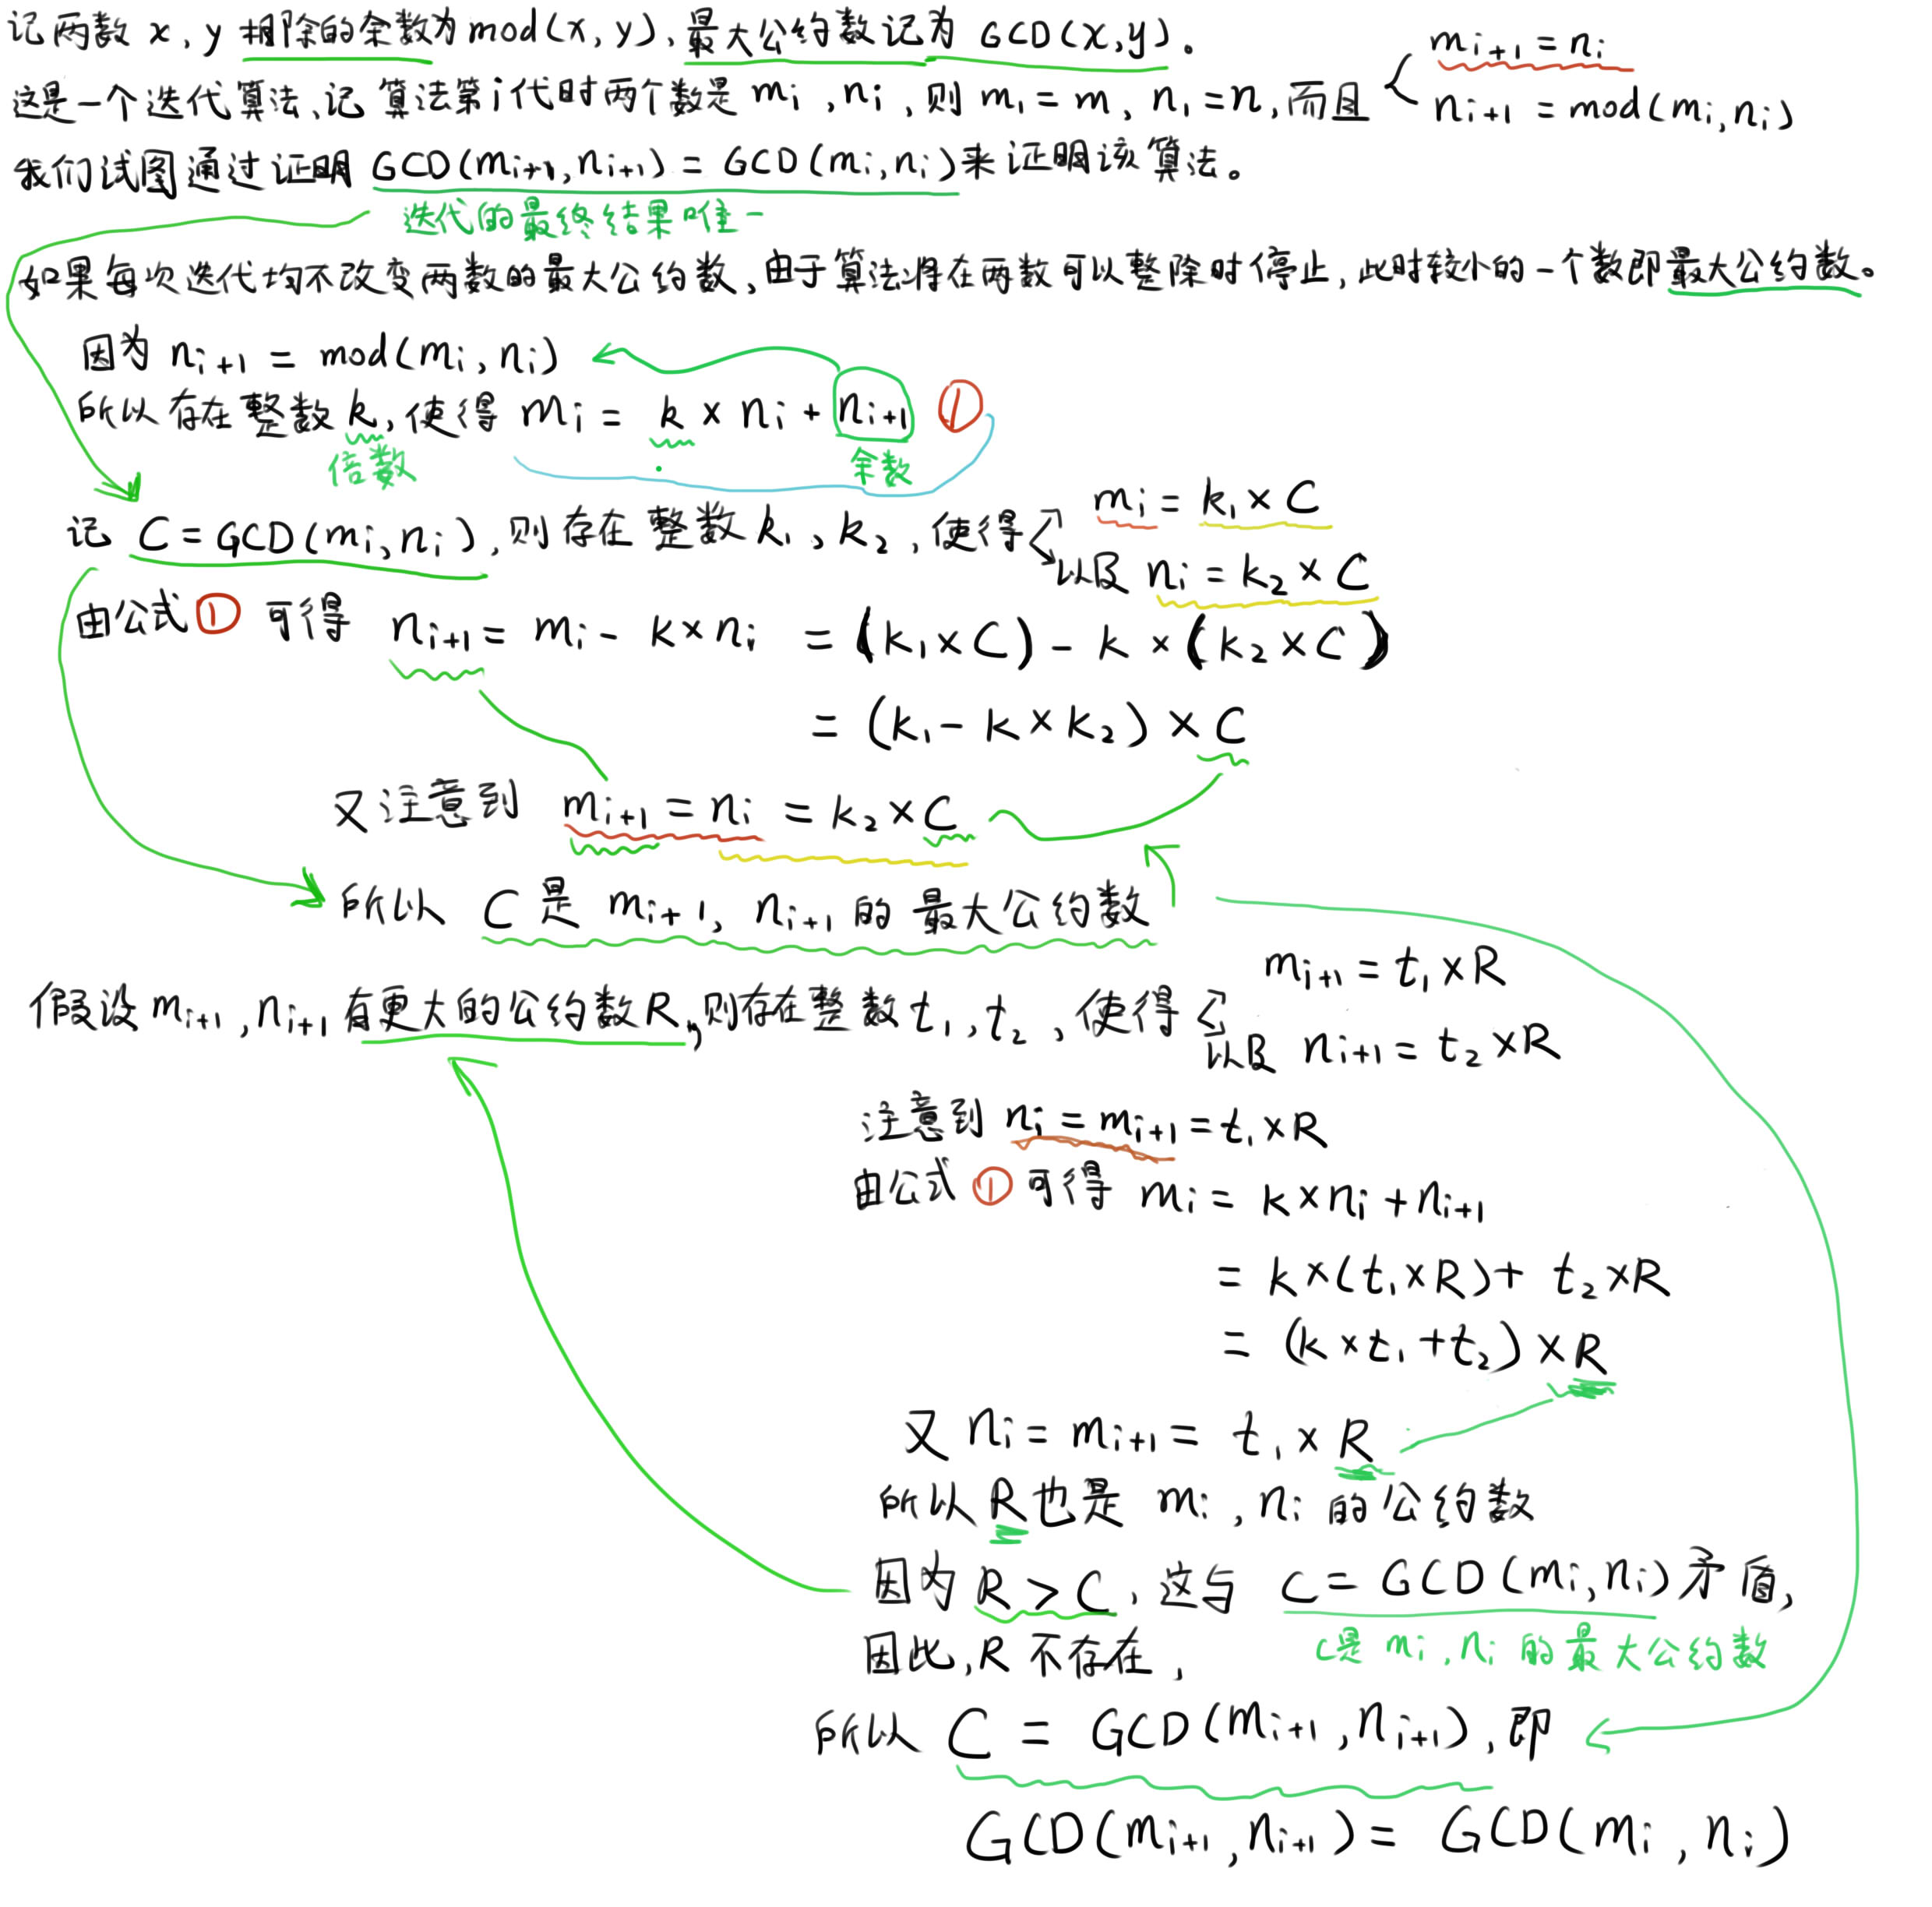 记两数 x, y 相除的余数为 mod(x, y), 最大公约数记为 GCD(x,y)。
这是一个迭代算法、记算法第i代时两个数是 mi , ni , 则 m₁ = m, n₁ = n, 而且 { mi+1 = ni
ni+1 = mod(mi, ni)
我们试图通过证明 GCD(mi+1, ni+1) = GCD(mi, ni) 来证明该算法。
迭代的最终结果唯一
如果每次迭代均不改变两数的最大公约数, 由于算法将在两数可以整除时停止, 此时较小的一个数即最大公约数。
因为 ni+1 = mod(mi, ni)
所以存在整数 k, 使得 mi = k × ni + ni+1 ①
倍数 余数
记 C = GCD(mi, ni), 则存在整数 k₁、k₂, 使得 mi = k₁ × C
以及 ni = k₂ × C
由公式① 可得 ni+1 = mi - k×ni = (k₁×C) - k × (k₂×C)
= (k₁ - k×k₂) × C
又注意到 mi+1 = ni = k₂×C
所以 C是 mi+1, ni+1 的最大公约数
假设 mi+1, ni+1 有更大的公约数R, 则存在整数 t₁, t₂, 使得 mi+1 = t₁×R
以及 ni+1 = t₂×R
注意到 ni = mi+1 = t₁×R
由公式 ① 可得 mi = k×ni + ni+1
= k×(t₁×R) + t₂×R
= (k×t₁+t₂) ×R
又 ni = mi+1 = t₁ × R
所以R也是 mi , ni 的公约数
因为 R > C, 这与 C = GCD(mi,ni)矛盾,
C是 mi, ni 的最大公约数
因此, R 不存在,
所以 C = GCD(mi+1, ni+1), 即
GCD(mi+1, ni+1) = GCD(mi , ni)